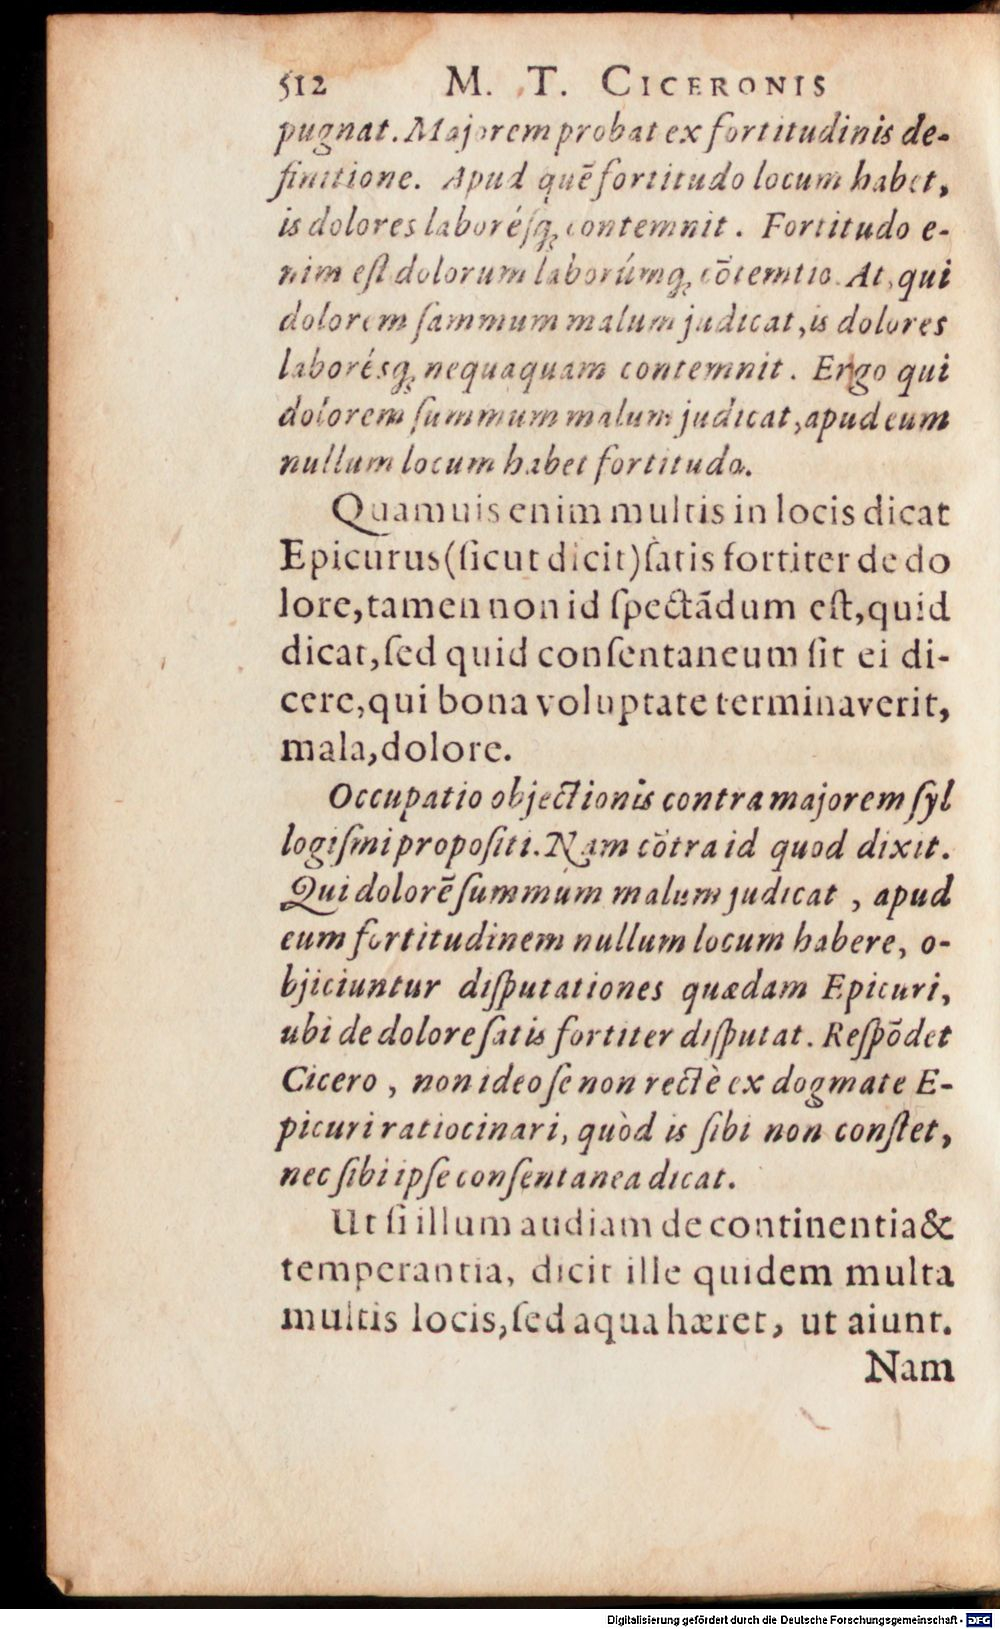 512 M. T. CICERONIS
pugnat. Majorem probat ex fortitudinis de-
finitione. Apud quẽ fortitudo locum habet,
is dolores laborésq; contemnit. Fortitudo e-
nim eſt dolorum laborúmq; cõtemtio. At, qui
dolorem ſummum malum judicat, is dolores
laborésq; nequaquam contemnit. Ergo qui
dolorem ſummum malum judicat, apud eum
nullum locum habet fortitudo.
Quamuis enim multis in locis dicat
Epicurus (ſicut dicit) ſatis fortiter de do
lore, tamen non id ſpectãdum eſt, quid
dicat, ſed quid conſentaneum ſit ei di-
cere, qui bona voluptate terminaverit,
mala, dolore.
Occupatio objectionis contra majorem ſyl
logiſmi propoſiti. Nam cõtra id quod dixit.
Qui dolorẽ ſummum malum judicat, apud
eum fortitudinem nullum locum habere, o-
bjiciuntur diſputationes quædam Epicuri,
ubi de dolore ſatis fortiter diſputat. Reſpõdet
Cicero, non ideo ſe non rectè ex dogmate E-
picuri ratiocinari, quòd is ſibi non conſtet,
nec ſibi ipſe conſentanea dicat.
Ut ſi illum audiam de continentia &
temperantia, dicit ille quidem multa
multis locis, ſed aqua hæret, ut aiunt.
Nam
Digitalisierung gefördert durch die Deutsche Forschungsgemeinschaft - DFG